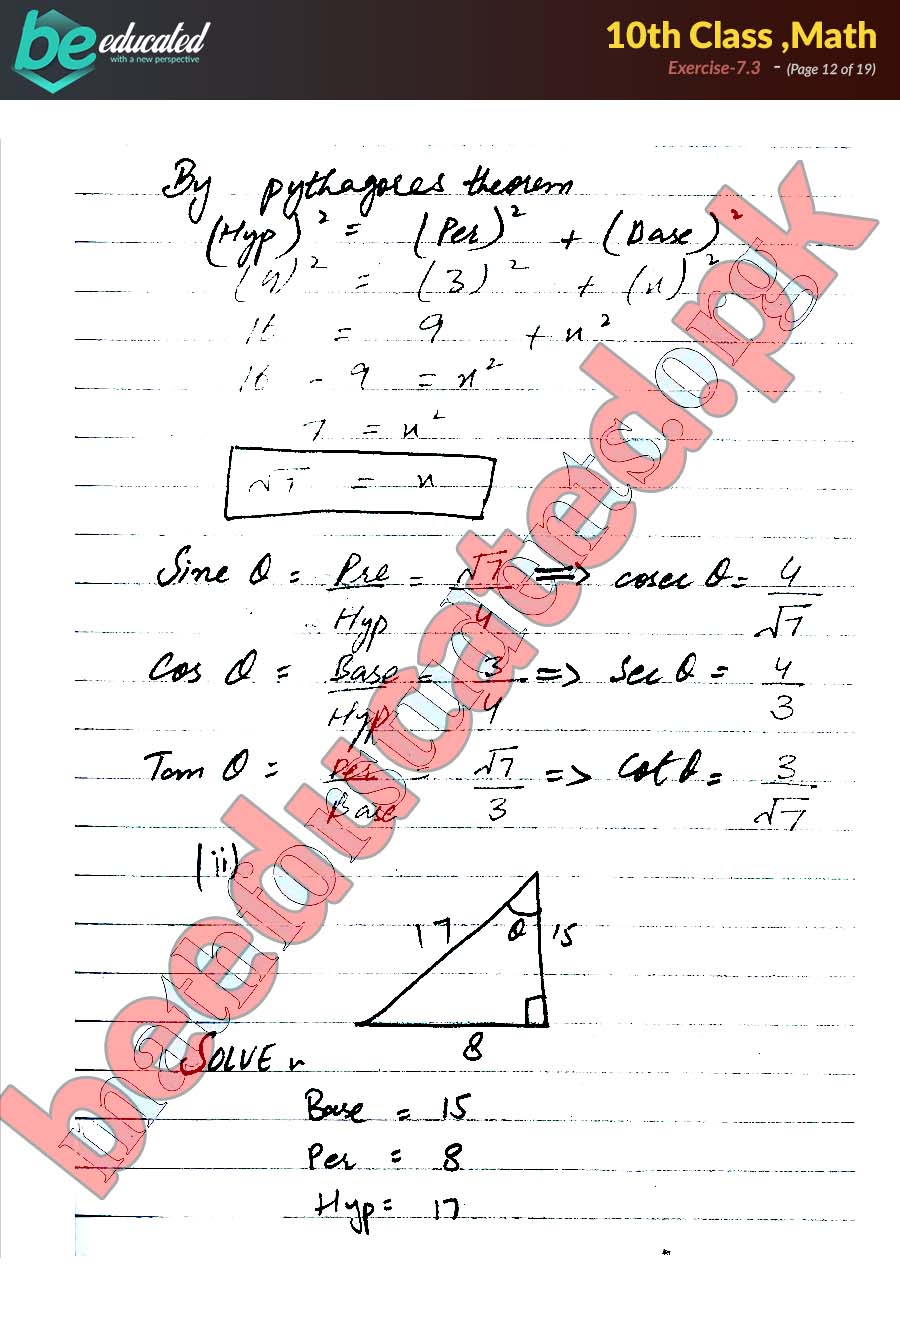 be educated
with a new perspective
10th Class ,Math
Exercise-7.3 - (Page 12 of 19)
By pythagores theorem
(Hyp)² = (Per)² + (Base)²
(4)² = (3)² + (x)²
16 = 9 + x²
16 - 9 = x²
7 = x²
√7 = x
Sine θ = Pre/Hyp = √7/4 => cosec θ = 4/√7
Cos θ = Base/Hyp = 3/4 => Sec θ = 4/3
Tan θ = Per/Base = √7/3 => Cot θ = 3/√7
(ii)
17 θ 15
8
SOLVE
Base = 15
Per = 8
Hyp = 17
beeducated.pk